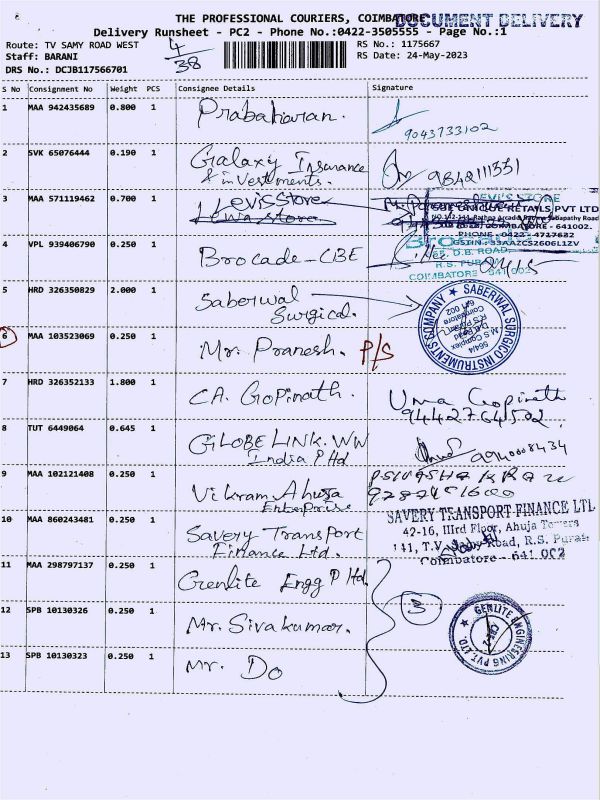 THE PROFESSIONAL COURIERS, COIMBATORE
DOCUMENT DELIVERY
Delivery Runsheet - PC2 - Phone No.:0422-3505555 - Page No.:1
Route: TV SAMY ROAD WEST
4/38
RS No.: 1175667
Staff: BARANI
RS Date: 24-May-2023
DRS No.: DCJB117566701
S No Consignment No Weight PCS Consignee Details Signature
1 MAA 942435689 0.800 1 Prabaharan.
9043733102
2 SVK 65076444 0.190 1 Galaxy Insurance
& investments.
9842111331
3 MAA 571119462 0.700 1 Levis Store
Lewa store
RETAILS PVT LTD
COIMBATORE - 641002.
PHONE : 0422 - 4717682
GSTIN : 33AAZCS2606L1ZV
4 VPL 939406790 0.250 1 Brocade - CBE
D.B. ROAD,
R.S. PURAM
COIMBATORE - 641 002
5 HRD 326350829 2.000 1 Saberwal
Surgical.
SABERWAL SURGICO INSTRUMENTS COMPANY
M.S Complex
D.B Road
R.S Puram
Coimbatore
641 002
6 MAA 103523069 0.250 1 Mr. Pranesh. P/S
7 HRD 326352133 1.800 1 CA. Gopinath.
Uma Gopinath
9442764502
8 TUT 6449064 0.645 1 GLOBE LINK. WW
India P ltd
9940008434
9 MAA 102121408 0.250 1 Vikram Ahuja
Enterprise
10 MAA 860243481 0.250 1 Savery Transport
Finance Ltd.
SAVERY TRANSPORT FINANCE LTD
42-16, IIIrd Floor, Ahuja Towers
141, T.V. Samy Road, R.S. Puram
Coimbatore - 641 002
11 MAA 298797137 0.250 1 Genlite Engg P ltd.
12 SPB 10130326 0.250 1 Mr. Sivakumar.
3
GENLITE ENGINEERING PVT. LTD.
CBE-2
13 SPB 10130323 0.250 1 Mr. Do